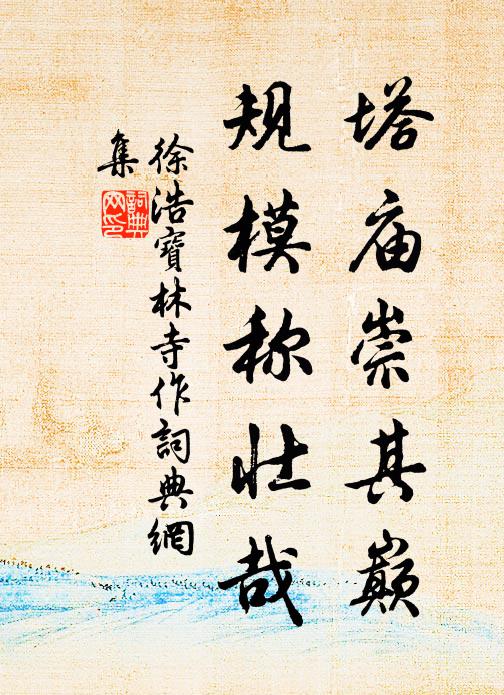 塔庙崇其巅
规模称壮哉
徐浩寶林寺作詞典網
集
詞典
网印